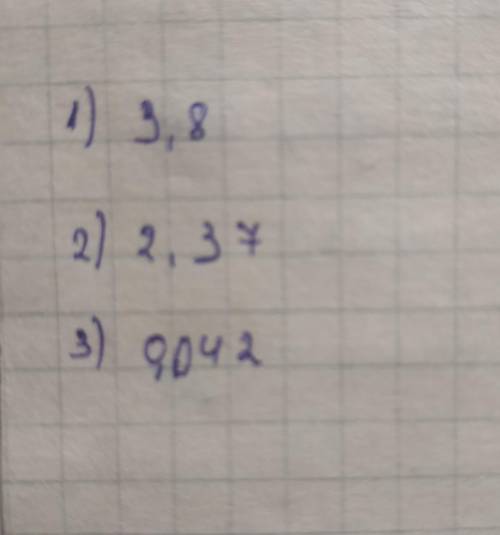 1) 3,8
2) 2,37
3) 9042